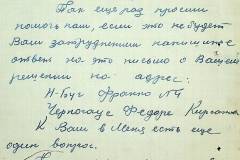 Так еще раз просим
помочь нам, если это не будет
Вам затруднением напишите
ответ на это письмо о Вашем
решении на адрес:
Н-Буг Франко №4
Федоре
К Вам в меня есть еще
один вопрос.